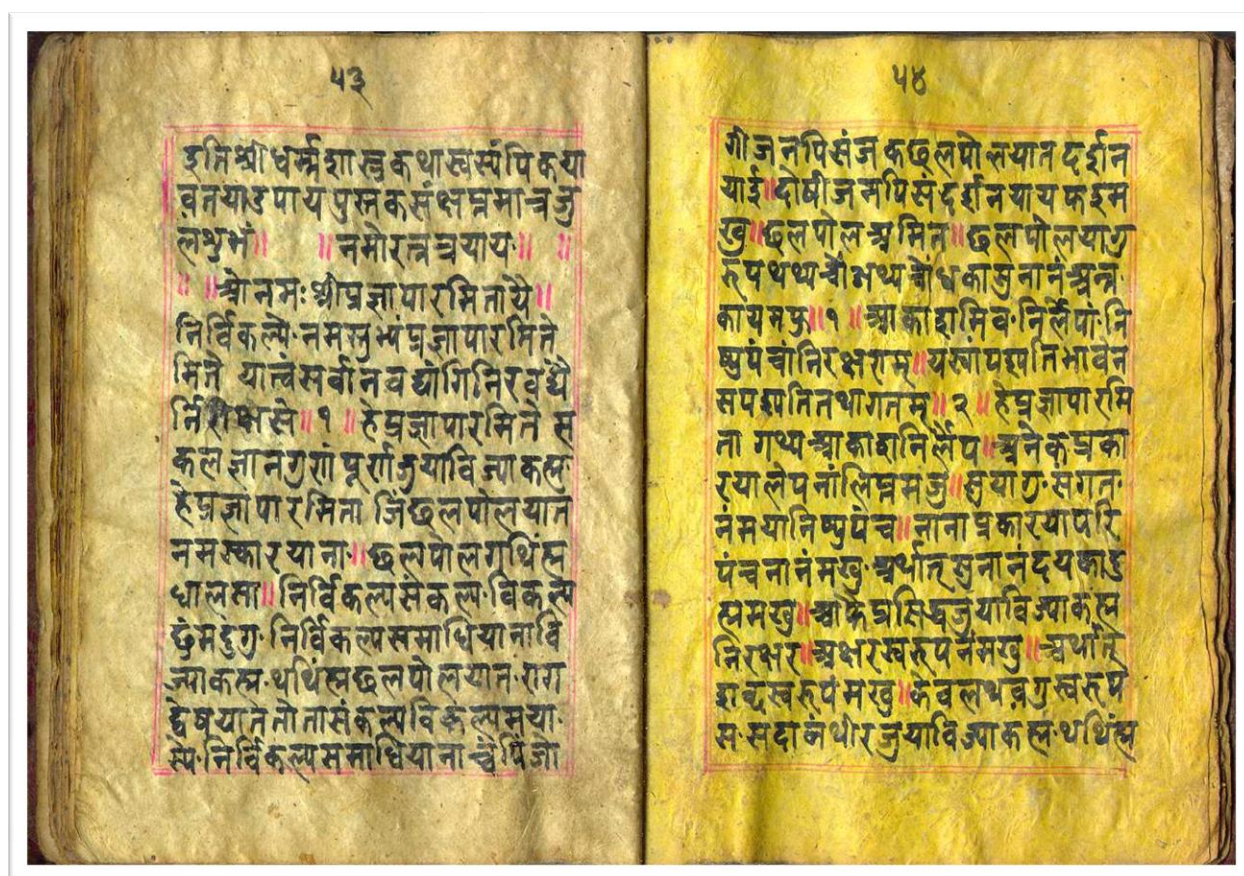 ५३
इति श्री धर्म्मशास्त्र कथास्वस्यंपिकया
वनयाउपाय पुस्तकसंक्षप्नमाच्वजु
लशुभं॥ ॥नमोरत्नत्रयाय॥ ॥
॥ ॥ओंनमःश्रीप्रज्ञापारमितायै॥
निर्विकल्पे·नमस्तुभ्यंप्रज्ञापारमिते
मिते यात्वंसर्वानवद्यांगिनिरवद्यै
र्निरीक्षसे॥१॥हेप्रज्ञापारमिते स
कलज्ञानगुणांपूर्णाजुयाविज्याकह्म·
हेप्रज्ञापारमिता जिंछलपोलयात
नमस्कारयाना·॥छलपोलगथिंह्म
धालसा॥निर्विकल्पसंकल्प·विकल्प
छुंमदुगु·निर्विकल्पसमाधियानावि
ज्याकह्म·थथिंह्मछलपोलयात·राग
द्वेषयाततोतासंकल्पविकल्पमया·
स्ये·निर्विकल्पसमाधियानाच्वंपिंजो
५४
गीजनपिसंजकछलपोलयातदर्शन
याई॥दोषीजनपिसंदर्शनयायफइम
खु॥छलपोलअमित॥छलपोलयागु
रुपथथ्यच्वौअथ्यच्वौधकासुनानंअन्त·
कायमफु॥१॥आकाशमिव·निर्लेपां·नि
ष्प्रपंचांनिरक्षराम्॥यस्त्वांपश्यतिभावेन
सपश्यतितथागतम्॥२॥हेप्रज्ञापारमि
ता गथ्य·आकाशनिर्लेप॥अनेकप्रका
रयालेपनांलिप्तमजु॥सुयागु·संगत·
नंमयानिष्प्रपंच॥नानाप्रकारयापरि
पंचनानंमखु·अर्थात्सुनानंदयकाउ
ह्ममखु॥आफैप्रसिद्धजुयाविज्याकह्म
निरक्षर॥अक्षरस्वरुपनंमखु॥अर्थात्
शब्दस्वरुपंमखु॥केवलथवगुस्वरुप
स·सदानंथीरजुयाविज्याकह्म·थथिंह्म